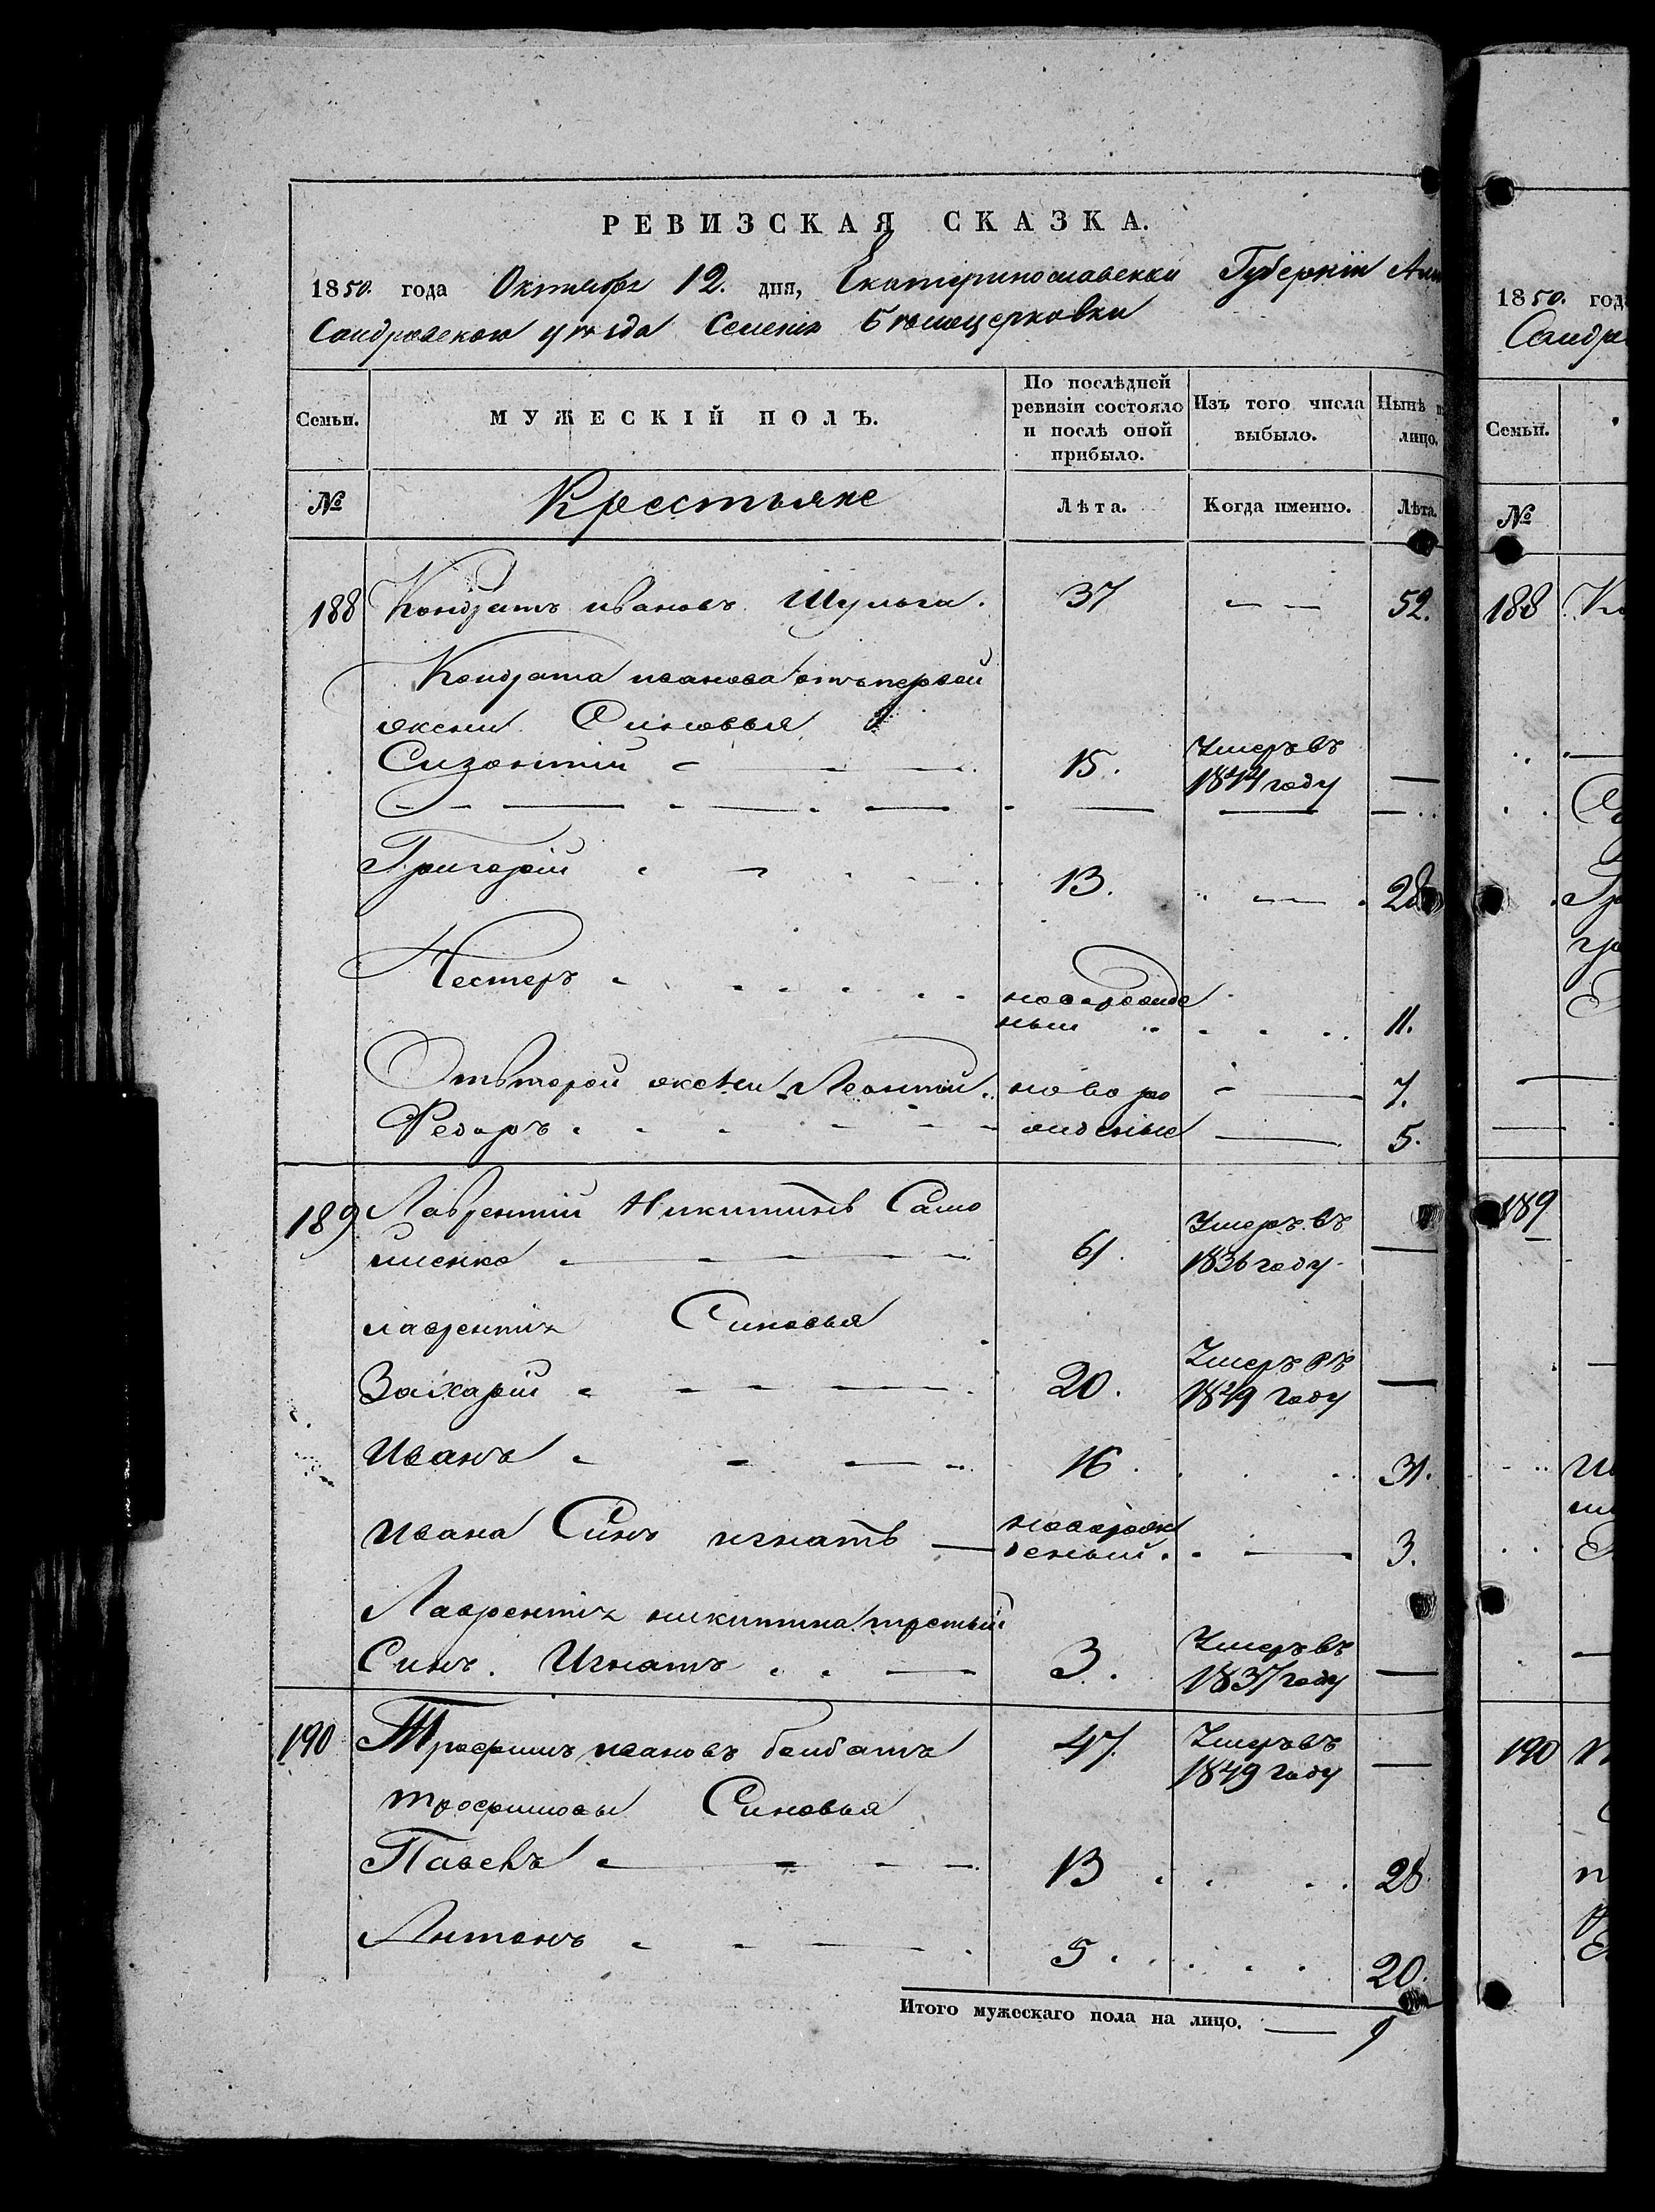 РЕВИЗСКАЯ СКАЗКА.
1850. года Октября 12. дня, Екатеринославской Губерніи Алек
Сандровскаго уѣзда Селенія Бѣлоцерковки
Семьи. МУЖЕСКІЙ ПОЛЪ. По послѣдней ревизіи состояло и послѣ оной прибыло. Изъ того числа выбыло. Нынѣ на лицо.
№ Крестьяне Лѣта. Когда именно. Лѣта.
188 Кондратъ ивановъ Шульга. 37 52.
Кондрата иванова отъ первой
жены Синовья
Сизонтій 15. Умеръ въ 1844 году
Григорій 13. 28
Нестеръ новорожде ный 11.
Отвторой жены Леонтій новоро 7.
Федоръ жденые 5.
189 Лаврентій Никитинъ Само
иленко 61. Умеръ въ 1836 году
лаврентія Синовья
Захарій 20. Умеръ въ 1849 году
Иванъ 16. 31.
ивана Синъ игнатъ новорож деный 3.
Лаврентія никитина третьій
Синъ. Игнатъ 3. Умеръ въ 1837 году
190 Трофимъ ивановъ 47. Умеръ въ 1849 году
трофимовы Синовья
Павелъ 13 28.
Антонъ 5. 20.
Итого мужескаго пола на лицо. 9
1850. год
Сандро
Семьи.
№
188
189
190